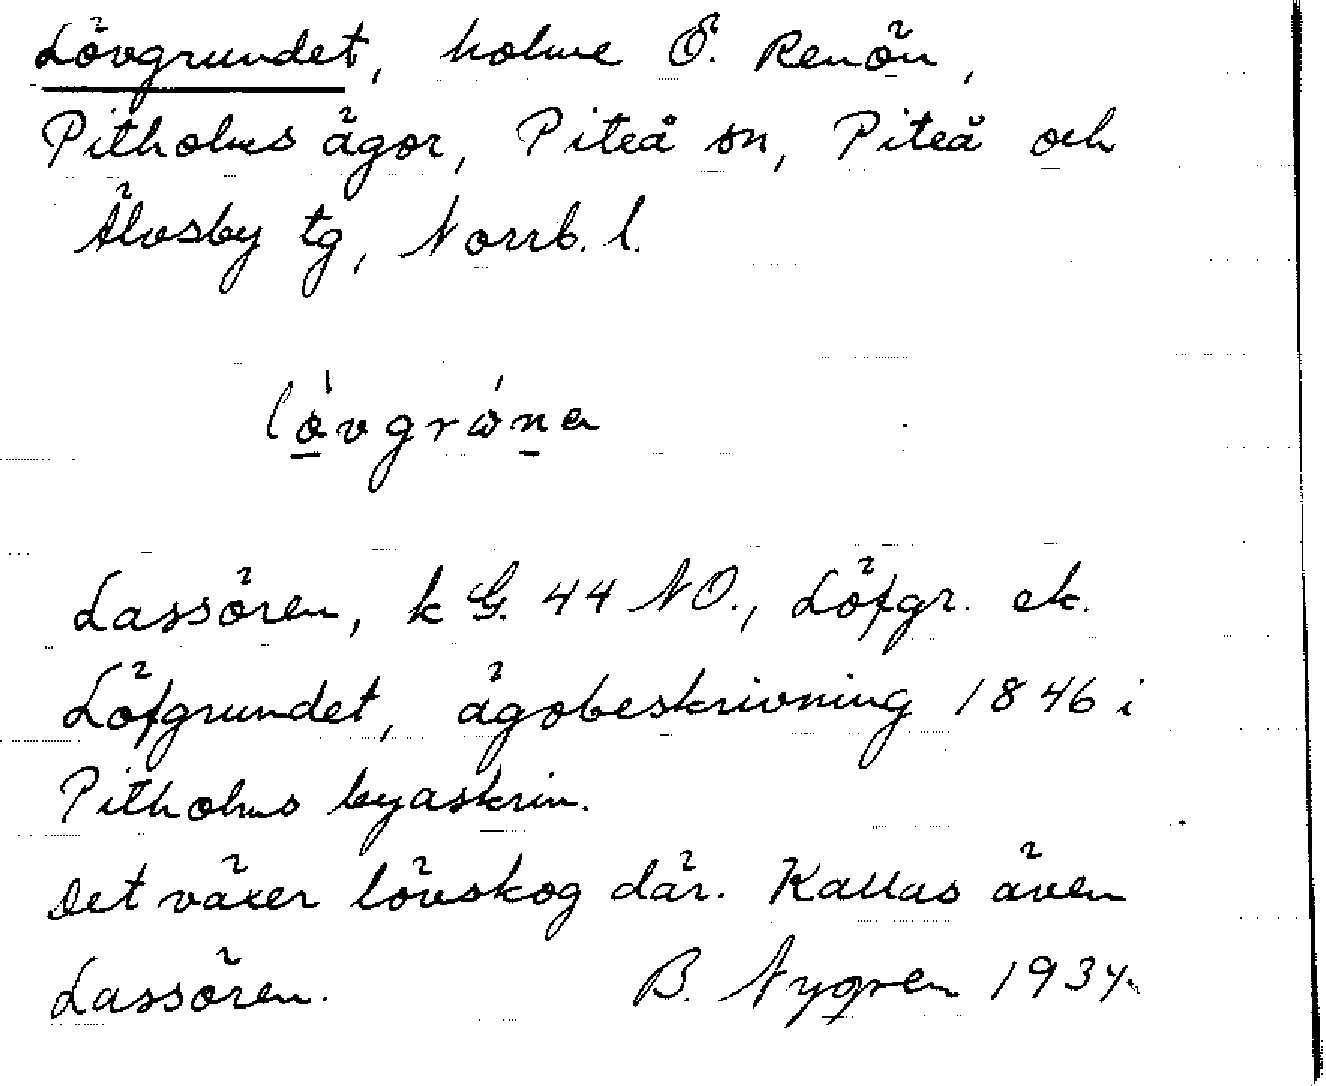 Lövgrundet, holme Ö. Renön,
Pitholms ägor, Piteå sn, Piteå och
Älvsby tg, Norrb. l.
Lassören, k G. 44 NO., Löfgr. ek.
Löfgrundet, ägobeskrivning 1846 i
Pitholms byaskrin.
Det växer lövskog där. Kallas även
Lassören. B. Nygren 1934.